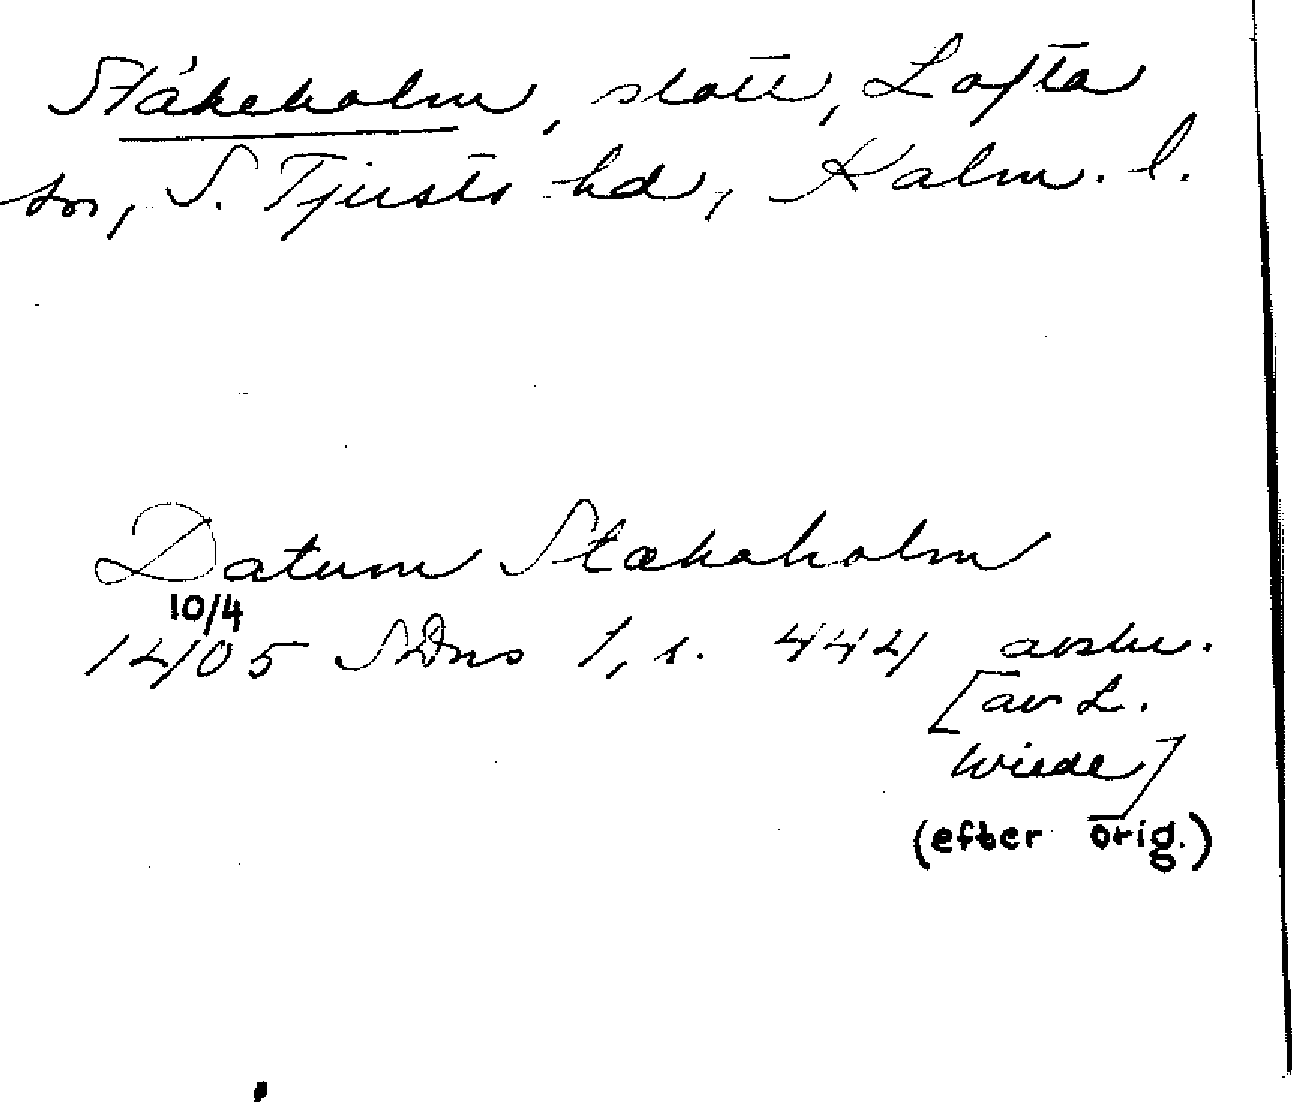 Stäkeholm, slott, Lofta
sn, S. Tjusts hd, Kalm. l.
Datum Stækaholm
10/4
1405 SDns 1, s. 444 avskr.
[av L.
Wiede]
(efter orig.)